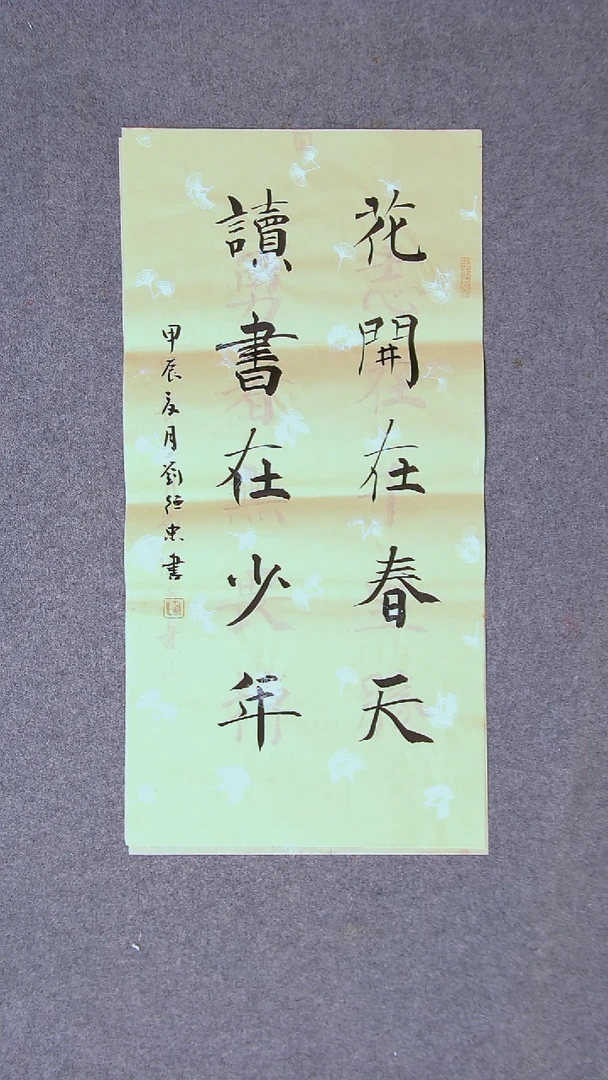 花開在春天
讀書在少年
甲辰夏月劉德忠書